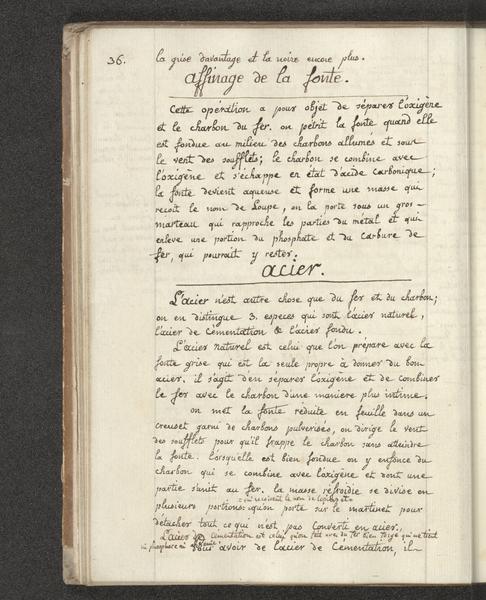 36.
la grise davantage et la noire encore plus.
affinage de la fonte.
Cette opération a pour objet de séparer l'oxigène
et le charbon du fer. on pétrit la fonte quand elle
est fondue au milieu des charbons allumés et sous
le vent des soufflets; le charbon se combine avec
l'oxigène et s'échappe en état d'acide carbonique;
la fonte devient aqueuse et forme une masse qui
reçoit le nom de Loupe, on la porte sous un gros
marteau qui rapproche les parties du métal et qui
enleve une portion du phosphate et du carbure de
fer, qui pourrait y rester.
acier.
L'acier n'est autre chose que du fer et du charbon;
on en distingue 3. especes qui sont l'acier naturel,
l'acier de cémentation & l'acier fondu.
L'acier naturel est celui que l'on prépare avec la
fonte grise qui est la seule propre à donner du bon
acier. il s'agit d'en séparer l'oxigène et de combiner
le fer avec le charbon d'une maniere plus intime.
on met la fonte réduite en feuille dans un
creuset garni de charbons pulverisés, on dirige le vent
des soufflets pour qu'il frappe le charbon sans atteindre
la fonte. Lorsquelle est bien fondue on y enfonce du
charbon qui se combine avec l'oxigène et dont une
partie s'unit au fer. la masse refroidie se divise en
qui reçoivent le nom de
plusieurs portions qu'on porte sur le martinet pour
détacher tout ce qui n'est pas converti en acier.
L'acier de cémentation est celui qu'on fait avec du fer bien forgé qui ne tient
ni phosphore ni
Pour avoir de l'acier de Cémentation, il